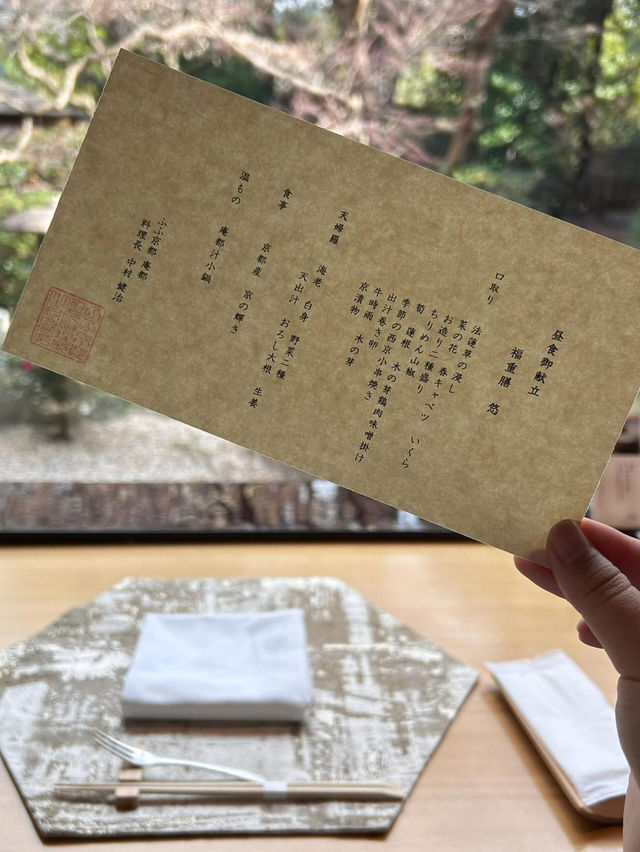 昼食御献立
福重膳 悠
口取り
法蓮草の浸し
菜の花 春キャベツ いくら
お造り二種盛り
ちりめん山椒
筍 蓮根 木の芽鶏肉味噌掛け
季節の西京小串焼き
出汁巻き卵
牛時雨 木の芽
京漬物
天婦羅
海老 白身 野菜二種
天出汁 おろし大根 生姜
食事
京都産 京の輝き
温もの
庵都汁小鍋
ふふ京都 庵都
料理長 中村 健治